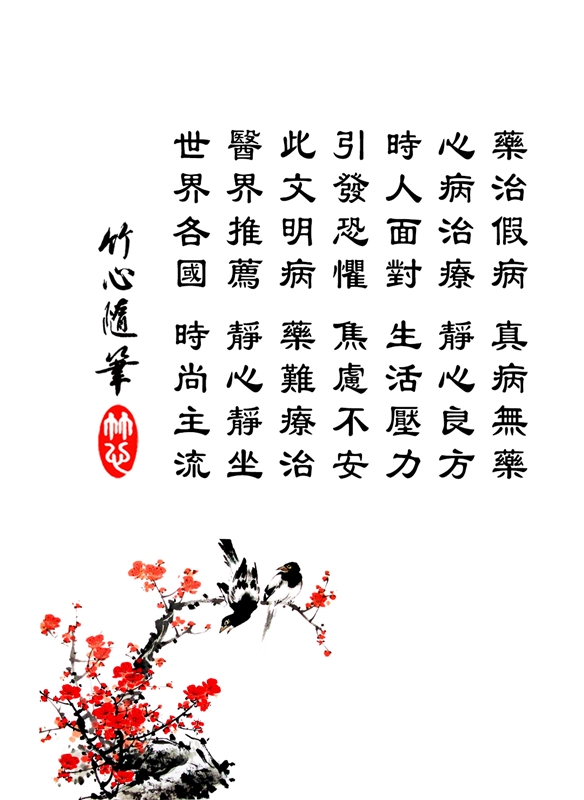 藥治假病 真病無藥
心病治療 靜心良方
時人面對 生活壓力
引發恐懼 焦慮不安
此文明病 藥難療治
醫界推薦 靜心靜坐
世界各國 時尚主流
竹心隨筆
竹心